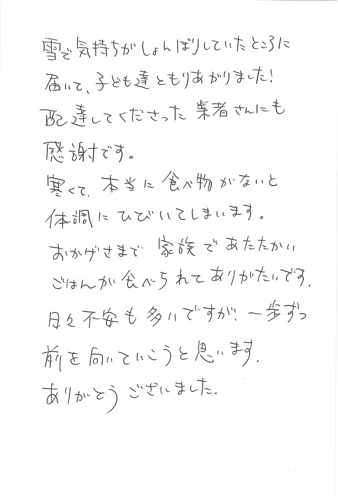 雪で気持ちがしょんぼりしていたところに
届いて、子ども達ともりあがりました!
配達してくださった業者さんにも
感謝です。
寒くて、本当に食べ物がないと
体調にひびいてしまいます。
おかげさまで家族であたたかい
ごはんが食べられてありがたいです。
日々不安も多いですが、一歩ずつ
前を向いていこうと思います。
ありがとうございました。